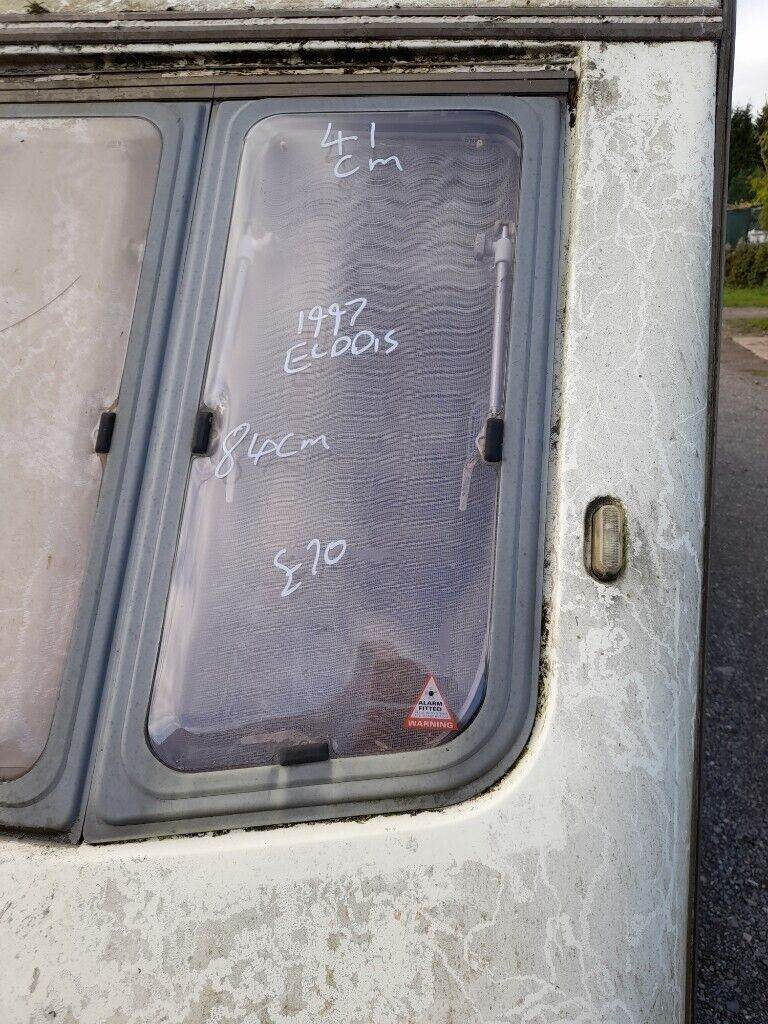 41
cm
1997
ELDDIS
84cm
£70
ALARM
FITTED
WARNING